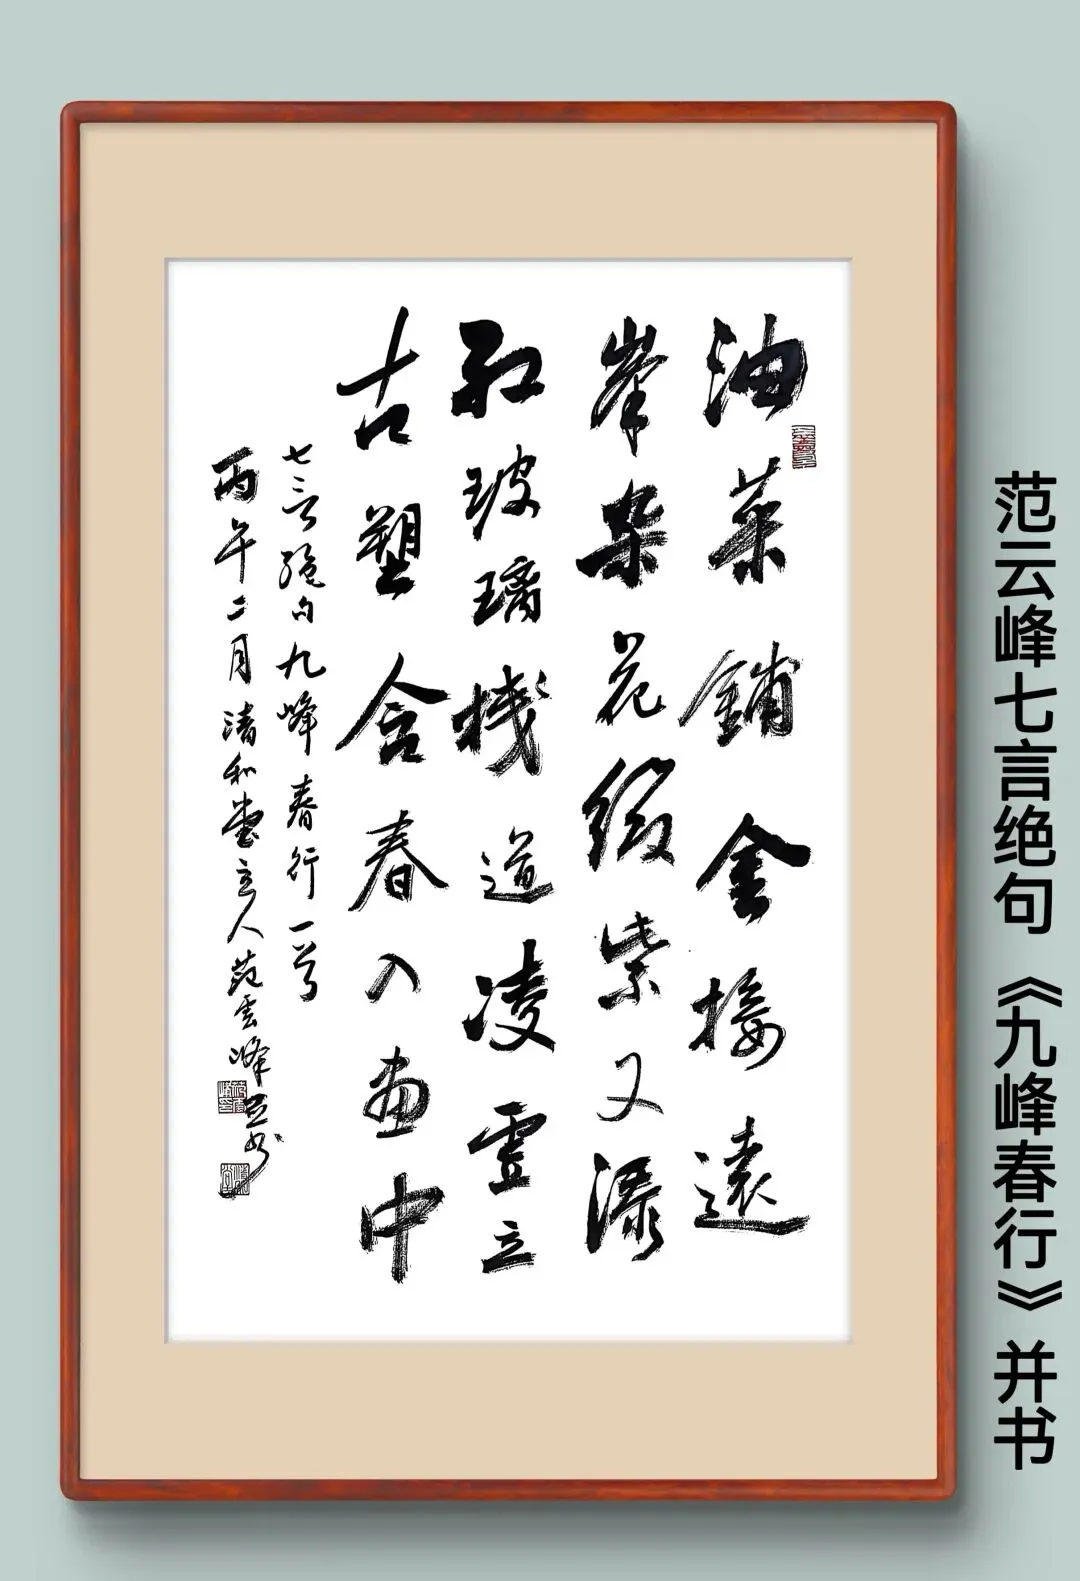 范云峰七言绝句《九峰春行》并书
油菜鋪金接遠
峯杂花缀紫又添
红玻璃栈道凌虚立
古塑含春入画中
七言绝句九峰春行一首
丙午二月清和堂主人范雲峰并书